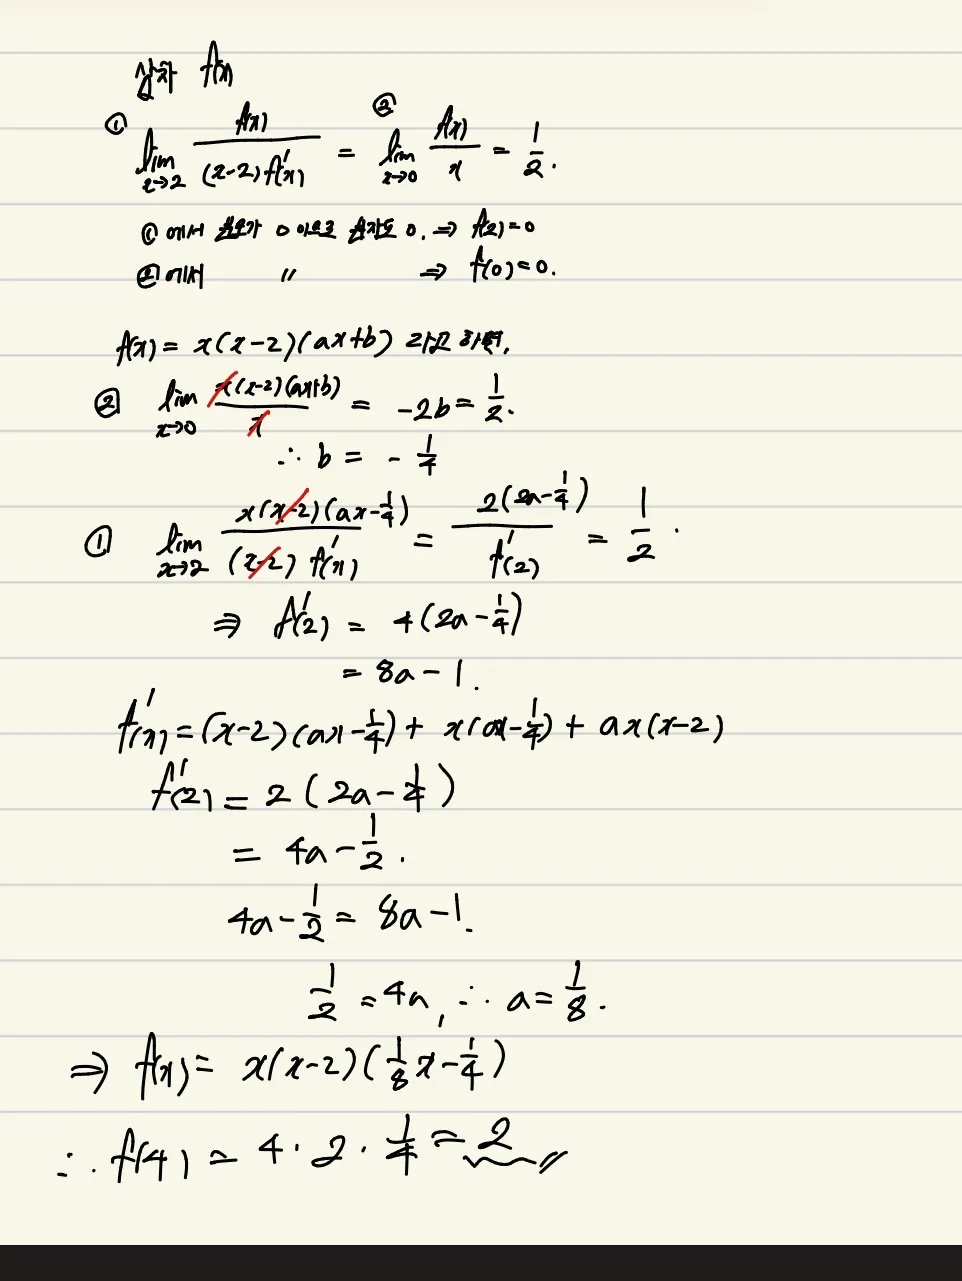 삼차 f(x)
① lim x→2 f(x)/((x-2)f'(x)) = ② lim x→0 f(x)/x = 1/2.
① 에서 분모가 0 이므로 분자도 0. ⇒ f(2)=0
② 에서 〃 ⇒ f(0)=0.
f(x) = x(x-2)(ax+b) 라고 하면,
② lim x→0 x(x-2)(ax+b)/x = -2b = 1/2.
∴ b = -1/4
① lim x→2 x(x-2)(ax-1/4)/((x-2) f'(x)) = 2(2a-1/4)/f'(2) = 1/2.
⇒ f'(2) = 4(2a-1/4)
= 8a-1.
f'(x) = (x-2)(ax-1/4) + x(ax-1/4) + ax(x-2)
f'(2) = 2(2a-1/4)
= 4a-1/2.
4a-1/2 = 8a-1.
1/2 = 4a, ∴ a = 1/8.
⇒ f(x) = x(x-2)(1/8x-1/4)
∴ f(4) = 4·2·1/4 = 2